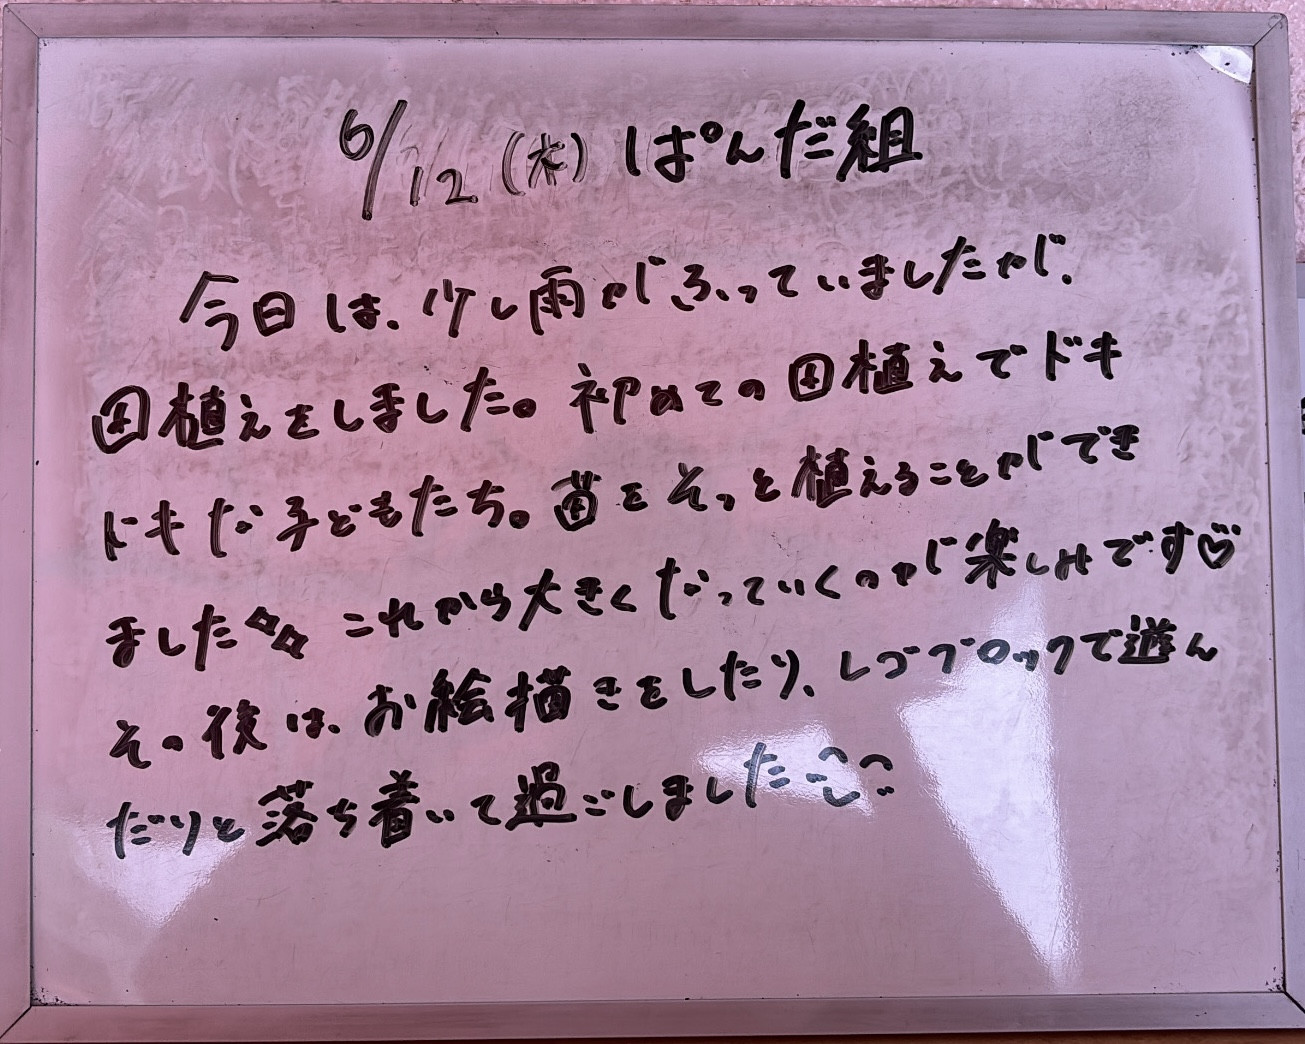 6/12(木) ぱんだ組
今日は、少し雨がふっていましたが、
田植えをしました。初めての田植えでドキ
ドキな子どもたち。苗をそっと植えることができ
ました これから大きくなっていくのが楽しみです♡
その後は、お絵描きをしたり、レゴブロックで遊ん
だりと落ち着いて過ごしました